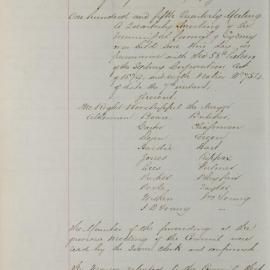 One hundred and fifth Quarterly Meeting
A Quarterly Meeting of the
Municipal Council of Sydney
was held here this day, in
pursuance with the 58th Section
of the Sydney Corporation Act
of 1879, and with Notice No 7/
of date the 7th instant,
Present
The Right Worshipful the Mayor
Alderman Beare Butcher
Chapman
Dean Green
Hardie Hart
Jones Kippax
Lees Palmer
Parkes Playfair
Poole Taylor
Withers Wm Young
J D Young
The Minutes of the proceedings at the
previous Meeting of the Council were
read by the Town Clerk and confirmed
The Mayor to the Council that